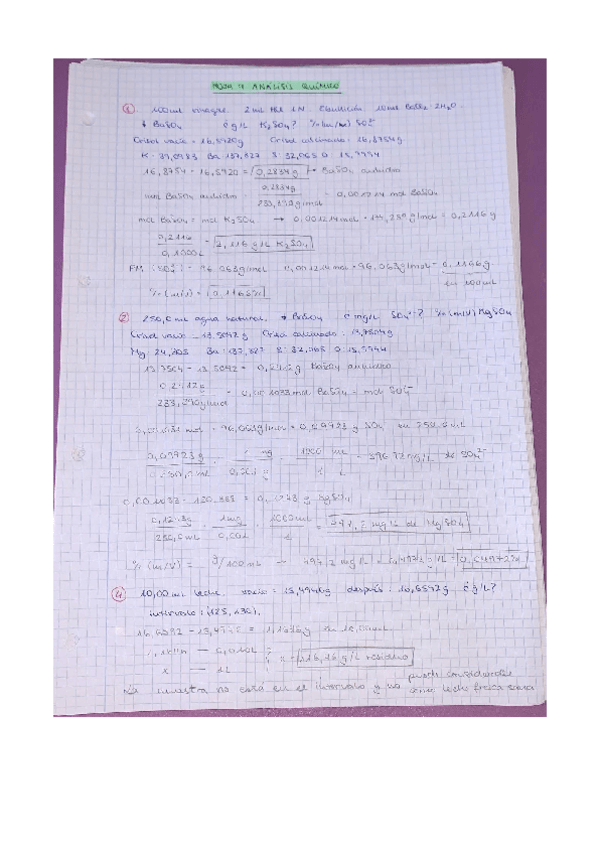 HOJA 4 ANÁLISIS QUÍMICO
① 100 mL vinagre. 2 mL HCl 1N. Ebullición. 10 mL BaCl2·2H2O.
↓ BaSO4 ¿g/L K2SO4? %(m/v) SO4²⁻
Crisol vacío = 16,5920g Crisol calcinado: 16,8754g
K: 39,0983 Ba: 137,327 S: 32,065 O: 15,9994
16,8754 - 16,5920 = 0,2834g → BaSO4 anhidro
mol BaSO4 anhidro = 0,2834g / 233,390 g/mol = 0,001214 mol BaSO4
mol BaSO4 = mol K2SO4 → 0,001214 mol · 174,259 g/mol = 0,2116 g
0,2116 / 0,1000L = 2,116 g/L K2SO4
PM (SO4²⁻) = 96,063g/mol 0,001214 mol · 96,063g/mol = 0,1166g en 100mL
%(m/v) = 0,1166%
② 250,0 mL agua natural. ↓ BaSO4 ¿mg/L SO4²⁻? %(m/V) MgSO4
Crisol vacío = 13,5042g Crisol calcinado: 13,7504g
Mg: 24,305 Ba: 137,327 S: 32,065 O: 15,9994
13,7504 - 13,5042 = BaSO4 anhidro
233,390g/mol = mol BaSO4 = mol SO4²⁻
mol · 96,063g/mol = 0,09923 g SO4²⁻ en 250,0 mL
0,09923 g / 250,0 mL · 1 mg / 0,001 g · 1000 mL / 1 L = mg/L de SO4²⁻
0,001033 · 120,368 = g MgSO4
250,0 mL · 1mg / 0,001 · 1000mL / L = 497,2 mg/L de MgSO4
%(m/V) = g/100mL → 497,2 mg/L = 0,4972 g/L = 0,04972%
④ 10,00 mL leche. vacío = después: ¿g/L?
intervalo: (125, 130).
en 10,00mL
0,010L
x — 1L x = g/L residuo
La muestra no está en el intervalo y no puede considerarse como leche fresca